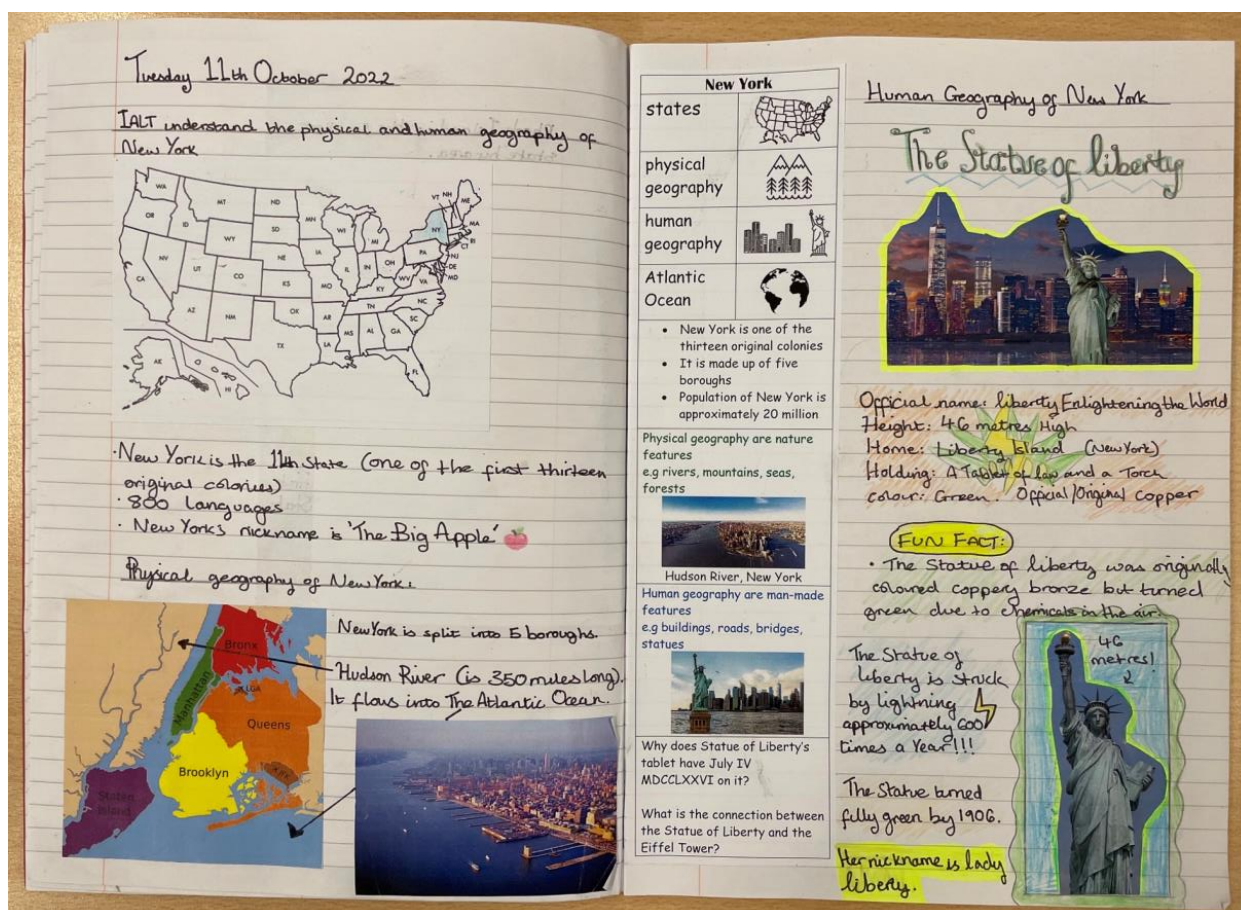 Tuesday 11th October 2022
IALT understand the physical and human geography of
New York
WA
OR
CA
ID
NV
MT
WY
UT
AZ
CO
NM
ND
SD
NE
KS
OK
TX
MN
IA
MO
AR
LA
WI
IL
MI
IN
OH
KY
TN
MS
AL
GA
FL
SC
NC
VA
WV
PA
NY
VT
NH
ME
MA
RI
CT
NJ
DE
MD
AK
HI
·New York is the 11th State (one of the first thirteen
original colonies)
· 800 Languages
· New York's nickname is 'The Big Apple'
Physical geography of New York:
Bronx
Manhattan
LGA
Queens
Brooklyn
JFK
Staten
Island
New York is split into 5 boroughs.
Hudson River (is 350 miles long).
It flows into The Atlantic Ocean.
New York
states
physical
geography
human
geography
Atlantic
Ocean
• New York is one of the
thirteen original colonies
• It is made up of five
boroughs
• Population of New York is
approximately 20 million
Physical geography are nature
features
e.g rivers, mountains, seas,
forests
Hudson River, New York
Human geography are man-made
features
e.g buildings, roads, bridges,
statues
Why does Statue of Liberty's
tablet have July IV
MDCCLXXVI on it?
What is the connection between
the Statue of Liberty and the
Eiffel Tower?
Human Geography of New York
The Statue of liberty
Official name: liberty Enlightening the World
Height: 46 metres High
Home: Liberty Island (New York)
Holding: A Tablet of law and a Torch
colour: Green. Official/Original copper
FUN FACT:
· The Statue of liberty was originally
coloured coppery bronze but turned
green due to chemicals in the air.
The Statue of
liberty is struck
by lightning
approximately 600
times a Year!!!
46
metres!
The Statue turned
fully green by 1906.
Her nickname is lady
liberty.